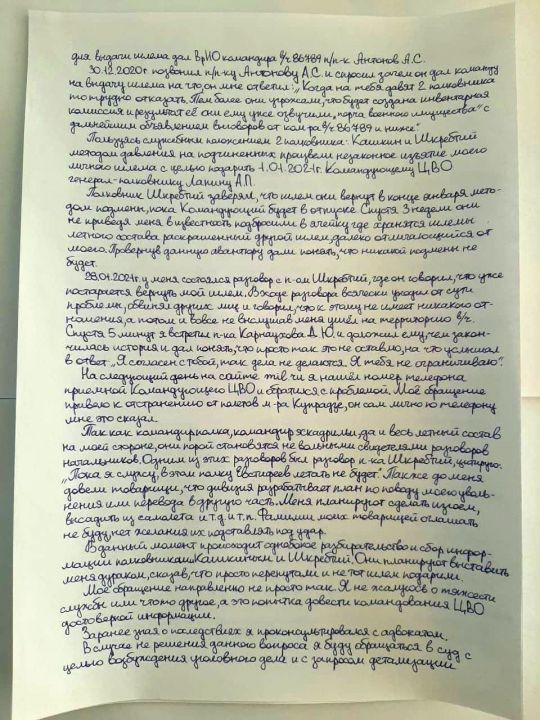 для выдачи шлема дал ВрИО командира в/ч 86789 п/п-к Антонов А.С.
30.12.2020г позвонил п/п-ку Антонову А.С. и спросил зачем он дал команду
на выдачу шлема на что он мне ответил: „Когда на тебя давят 2 полковника
то трудно отказать. Тем более они угрожали, что будет создана инвентарная
комиссия и результат её они ему уже озвучили, „порча военного имущества" с
дальнейшим объявлением выговоров от ком-ра в/ч 86789 и ниже."
Пользуясь служебным положением 2 полковника: Кашкин и Шкребтий
методом давления на подчиненных произвели незаконное изъятие моего
личного шлема с целью подарить 1.01.2021г. Командующему ЦВО
генерал-полковнику Лапину А.П.
Полковник Шкребтий заверял, что шлем они вернут в конце января, мето-
дом подмены, пока Командующий будет в отпуске. Спустя 3 недели они
не приведя меня в известность подбросили в ячейку где хранятся шлемы
летного состава раскрашенный другой шлем, далеко отличающийся от
моего. Провернув данную авантюру дали понять, что никакой подмены не
будет.
28.01.2021г. у меня состоялся разговор с п-ом Шкребтий, где он говорил, что уже
постарается вернуть мой шлем. В ходе разговора всячески уходил от сути
проблемы, обвинял других лиц и говорил, что к этому не имеет никакого от-
ношения, а потом и вовсе не выслушав меня ушел на территорию в/ч.
Спустя 5 минут я встретил п-ка Карнаухова Д.Ю. и доложил ему, чем закон-
чилась история и дал понять, что просто так это не оставлю, на что услышал
в ответ „Я согласен с тобой, так дела не делаются. Я тебя не ограничиваю".
На следующий день на сайте я нашёл номер телефона
приемной Командующего ЦВО и обратился с проблемой. Мое обращение
привело к отстранению от полетов м-ра Купрадзе, он сам лично по телефону
мне это сказал.
Так как командир полка, командир эскадрильи, да и весь летный состав
на моей стороне, они порой становятся не вольными свидетелями разговоров
начальников. Одним из этих разговоров был разговор п-ка Шкребтий, цитирую:
„Пока я служу, в этом полку Евстифеев летать не будет." Также до меня
довели товарищи, что дивизия разрабатывает план по поводу моего уволь-
нения или перевода в другую часть. Меня планируют сделать изгоем,
высадить из самолета и т.д. и т.п. Фамилии моих товарищей оглашать
не буду, нет желания их подставлять под удар.
В данный момент происходит однобокое разбирательство и сбор инфор-
мации полковниками Кашкиным и Шкребтий. Они планируют выставить
меня дураком, сказав, что просто перепутали и не тот шлем подарили.
Мое обращение направленно не просто так. Я не жалуюсь о тяжести
службы или что-то другое, а это попытка довести командования ЦВО
достоверной информации.
Заранее зная о последствиях я проконсультировался с адвокатом.
В случае не решения данного вопроса я буду обращаться в суд с
целью возбуждения уголовного дела и с запросом детализации